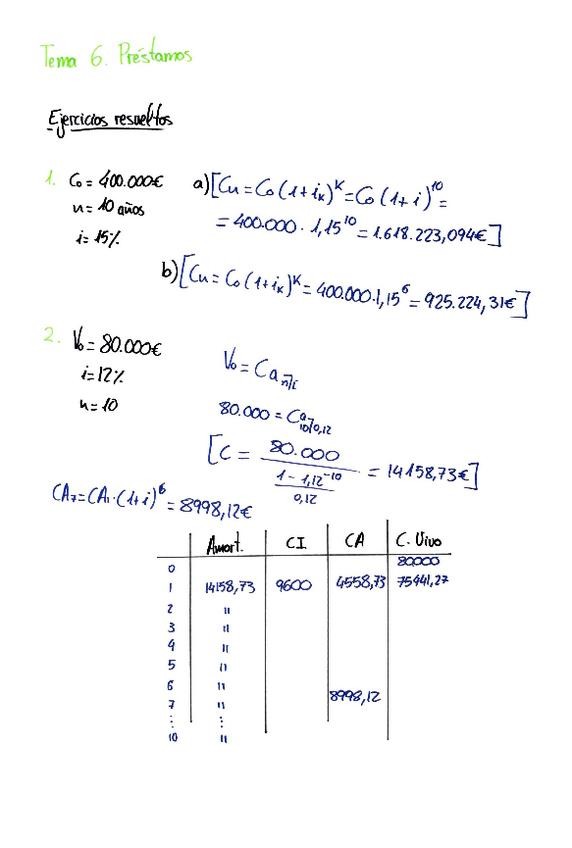 Tema 6. Préstamos
Ejercicios resueltos
1. C₀ = 400.000€
n = 10 años
i = 15%
a) [Cn = C₀ (1 + iₖ)ᴷ = C₀ (1 + i)¹⁰ =
= 400.000 · 1,15¹⁰ = 1.618.223,094€]
b) [Cn = C₀ (1 + iₖ)ᴷ = 400.000 · 1,15⁶ = 925.224,31€]
2. V₀ = 80.000€
i = 12%
n = 10
V₀ = C a n⌉i
80.000 = C a 10⌉0,12
[C = 80.000 / ((1 - 1,12⁻¹⁰) / 0,12) = 14158,73€]
CA₇ = CA₁ · (1 + i)⁶ = 8998,12€
Amort. CI CA C. Vivo
0 80000
1 14158,73 9600 4558,73 75441,27
2 "
3 "
4 "
5 "
6 "
7 " 8998,12
⋮ ⋮
10 "